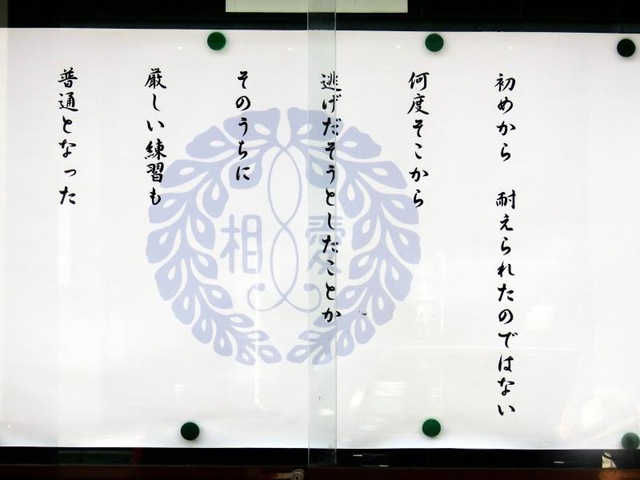 初めから 耐えられたのではない
何度そこから
逃げだそうとしたことか
そのうちに
厳しい練習も
普通となった
相愛